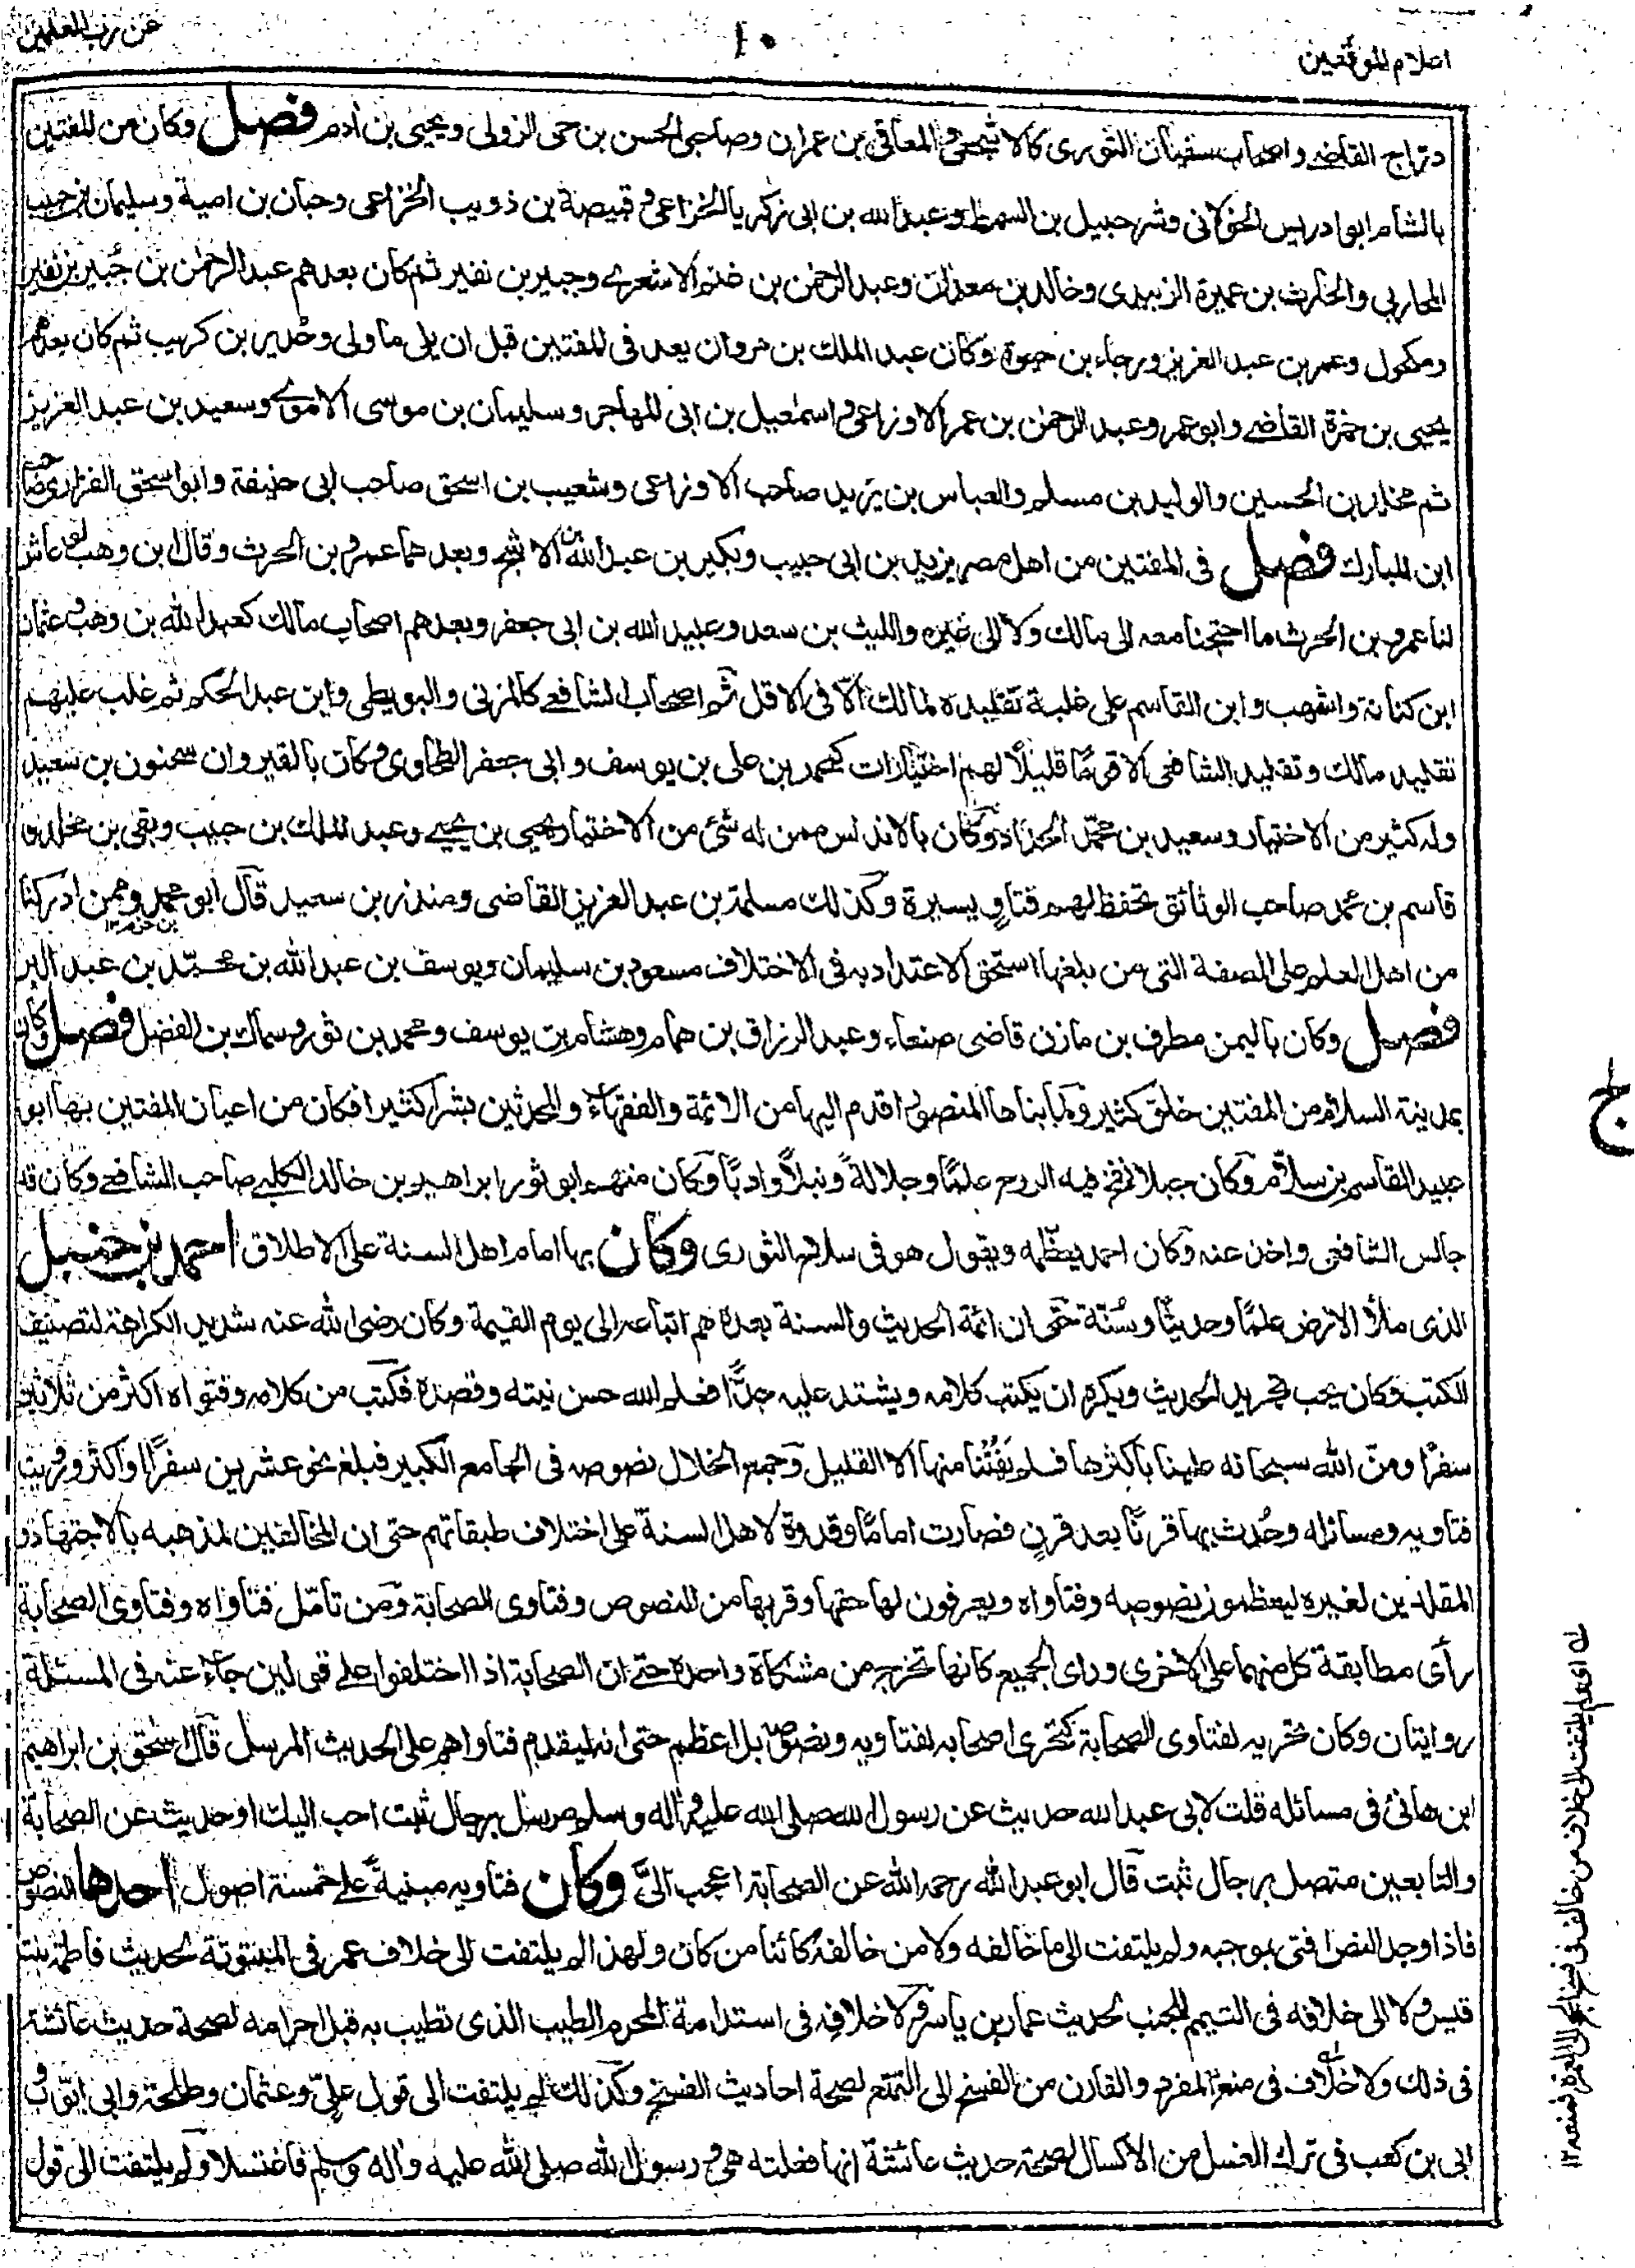 اعلام الموقعين
١٠
عن رب العلمين
دراج القاضے واصحاب سفيان الثوري كالاشجعي والمعافى بن عمران وصاحبي الحسن بن حي الزولى ويحيى بن ادم فصل وكان من المفتين
بالشام ابو ادريس الخولاني وشرحبيل بن السمط وعبد الله بن ابى زكريا الخزاعى وقبيصة بن ذويب الخزاعى وحبان بن امية وسليمان بن حبيب
المحاربي والحارث بن عميرة الزبيدى وخالد بن معدان وعبد الرحمن بن غنم الاشعرے وجبير بن نفير ثم كان بعدهم عبد الرحمن بن جُبير بن نفير
ومكحول وعمر بن عبد العزيز ورجاء بن حيوة وكان عبد الملك بن مروان يعد فى المفتين قبل ان يلى ما ولى وحُدير بن كريب ثم كان بعدهم
يحيى بن حمزة القاضے وابو عمر وعبد الرحمن بن عمر الاوزاعى واسمعيل بن ابى المهاجر وسليمان بن موسى الاموے وسعيد بن عبد العزيز
ثم مخلد بن الحسين والوليد بن مسلم والعباس بن يزيد صاحب الاوزاعى وشعيب بن اسحق صاحب ابى حنيفة وابو اسحق الفزارى صاحب
ابن المبارك فصل فى المفتين من اهل مصر يزيد بن ابى حبيب وبكير بن عبد الله بن الاشج وبعدهما عمرو بن الحرث وقال ابن وهب لو عاش
لنا عمرو بن الحرث ما احتجنا معه الى مالك ولا الى غيره والليث بن سعد وعبيد الله بن ابى جعفر وبعدهم اصحاب مالك كعبد الله بن وهب وعثمان
ابن كنانة واشهب وابن القاسم على غلبة تقليده لمالك الّا فى الاقل ثم اصحاب الشافعے كالمزنى والبويطى وابن عبد الحكم ثم غلب عليهم
تقليد مالك وتقليد الشافعى الا قومًا قليلًا لهم اختيارات كمحمد بن على بن يوسف وابى جعفر الطحاوى وكان بالقيروان سحنون بن سعيد
وله كثير من الاختيار وسعيد بن محمّد الحداد وكان بالاندلس ممن له شئ من الاختيار يحيى بن يحيے وعبد الملك بن حبيب وبقى بن مخلد و
قاسم بن محمد صاحب الوثائق تحفظ لهم فتاوٍ يسيرة وكذلك مسلمة بن عبد العزيز القاضى ومنذر بن سعيد قال ابو محمد وممن ادركنا
بن حزم ١٢
من اهل العلم على الصفة التى من بلغها استحق الاعتداد به فى الاختلاف مسعود بن سليمان ويوسف بن عبد الله بن محمّد بن عبد البر
فصل وكان باليمن مطرف بن مازن قاضى صنعاء وعبد الرزاق بن همام وهشام بن يوسف ومحمد بن ثور وسماك بن الفضل فصل وكان
بمدينة السلام من المفتين خلق كثير ولما بناها المنصور اقدم اليها من الائمة والفقهاء والمحدثين بشرا كثيرا فكان من اعيان المفتين بها ابو
عبيد القاسم بن سلّام وكان جبلا نفخ فيه الروح علمًا وجلالةً ونبلًا وادبًا وكان منهم ابو ثور ابراهيم بن خالد الكلبى صاحب الشافعے وكان قد
جالس الشافعى واخذ عنه وكان احمد يعظّمه ويقول هو فى سلاخ الثورى وكان بها امام اهل السنة على الاطلاق احمد بن حنبل
الذى ملأ الارض علمًا وحديثًا وسُنّة حتى ان ائمة الحديث والسنة بعده هم اتباعه الى يوم القيمة وكان رضى الله عنه شديد الكراهة لتصنيف
الكتب وكان يحب تجريد الحديث ويكره ان يكتب كلامه ويشتد عليه جدًّا فعلم الله حسن نيته وقصده فكتب من كلامه وفتواه اكثر من ثلاثين
سفرًا ومنّ الله سبحانه علينا باكثرها فلم يَفُتْنا منها الا القليل وجمع الخلال نصوصه فى الجامع الكبير فبلغ نحو عشرين سفرًا او اكثر ورويت
فتاويه ومسائله وحُدث بها قرنًا بعد قرنٍ فصارت امامًا وقدوة لاهل السنة على اختلاف طبقاتهم حتى ان المخالفين لمذهبه بالاجتهاد و
المقلدين لغيره ليعظمون نصوصه وفتاواه ويعرفون لها حقها وقربها من النصوص وفتاوى الصحابة ومن تامّل فتاواه وفتاوى الصحابة
رأى مطابقة كل منهما على الاخرى وراى الجميع كانها تخرج من مشكاة واحدة حتے ان الصحابة اذا اختلفوا على قولين جاء عنه فى المسئلة
روايتان وكان تحريه لفتاوى الصحابة كتحرى اصحابه لفتاويه ونصوصه بل اعظم حتى انه ليقدم فتاواهم على الحديث المرسل قال اسحق بن ابراهيم
ابن هانئ فى مسائله قلت لابى عبد الله حديث عن رسول الله صلى الله عليه واله وسلم مرسل برجال ثبت احب اليك او حديث عن الصحابة
والتابعين متصل برجال ثبت قال ابو عبد الله رحمه الله عن الصحابة اعجب الىّ وكان فتاويه مبنيةً على خمسة اصول احدها النصوص
فاذا وجد النص افتى بموجبه ولم يلتفت الى ما خالفه ولا من خالفه كائنا من كان ولهذا لم يلتفت الى خلاف عمر فى المبتوتة لحديث فاطمة بنت
قيس ولا الى خلافه فى التيمم للجنب لحديث عمار بن ياسر ولا خلافه فى استدامة المحرم الطيب الذى تطيب به قبل احرامه لصحة حديث عائشة
فى ذلك ولا خلاف له فى منع المفرد والقارن من الفسخ الى التمتع لصحة احاديث الفسخ وكذلك لم يلتفت الى قول علىّ وعثمان وطلحة وابى ايّوب و
ابى بن كعب فى ترك الغسل من الاكسال لصحة حديث عائشة انها فعلته هى ورسول الله صلى الله عليه واله وسلم فاغتسلا ولم يلتفت الى قول
ج
له اى لم يلتفت الى خلاف من خالف فى فسخ الحج الى العمرة فمنعه ١٢